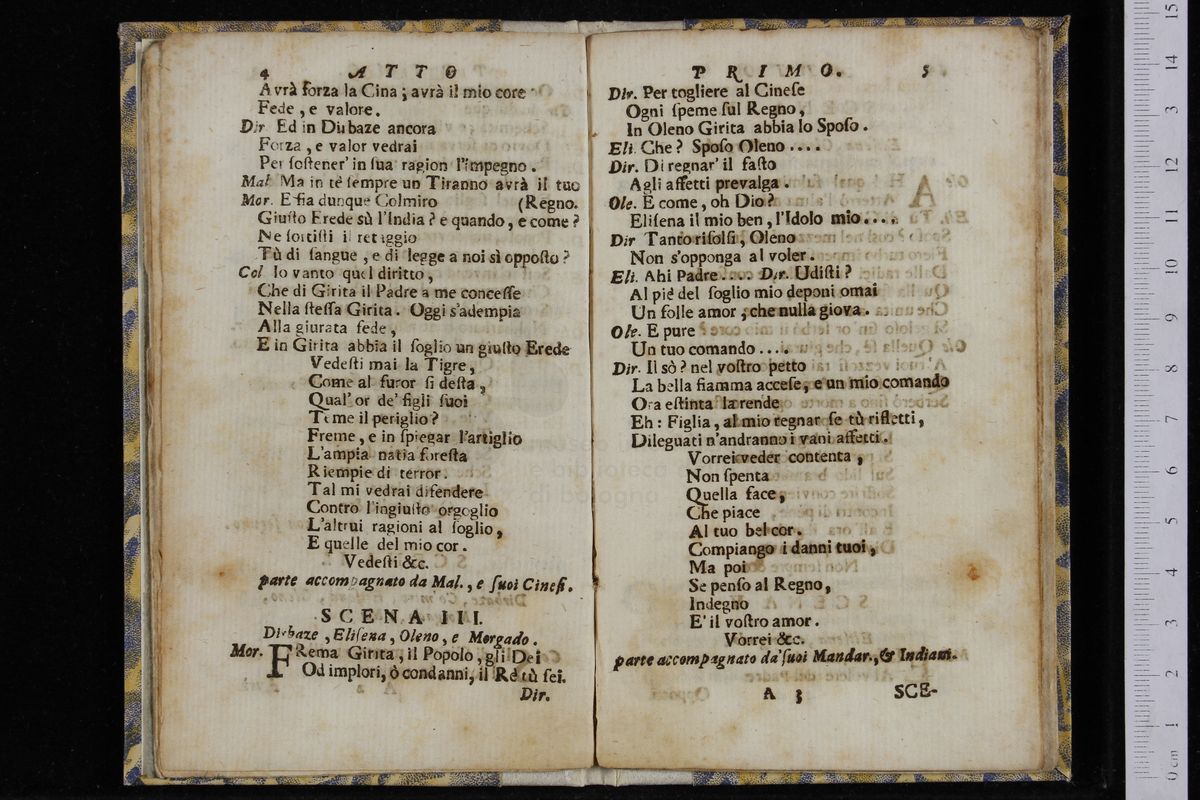 4 ATTO
Avrà forza la Cina; avrà il mio core
Fede, e valore.
Dir Ed in Dirbaze ancora
Forza, e valor vedrai
Per ſoſtener' in ſua ragion l'impegno.
Mal Ma in tè ſempre un Tiranno avrà il tuo
Mor. E ſia dunque Colmiro (Regno.
Giuſto Erede sù l'India? e quando, e come?
Ne ſortiſti il retaggio
Tù di ſangue, e di legge a noi sì oppoſto?
Col Io vanto quel diritto,
Che di Girita il Padre a me conceſſe
Nella ſteſſa Girita. Oggi s'adempia
Alla giurata fede,
E in Girita abbia il ſoglio un giuſto Erede
Vedeſti mai la Tigre,
Come al furor ſi deſta,
Qual' or de' figli ſuoi
Teme il periglio?
Freme, e in ſpiegar l'artiglio
L'ampia natia foreſta
Riempie di terror.
Tal mi vedrai difendere
Contro l'ingiuſto orgoglio
L'altrui ragioni al ſoglio,
E quelle del mio cor.
Vedeſti &c.
parte accompagnato da Mal., e ſuoi Cineſi.
SCENA III.
Dirbaze, Eliſena, Oleno, e Morgado.
Mor. FRema Girita, il Popolo, gli Dei
Od implori, ò condanni, il Rè tù ſei.
Dir.
PRIMO. 5
Dir. Per togliere al Cineſe
Ogni ſpeme ſul Regno,
In Oleno Girita abbia lo Spoſo.
Eli. Che? Spoſo Oleno....
Dir. Di regnar' il faſto
Agli affetti prevalga.
Ole. E come, oh Dio?
Eliſena il mio ben, l'Idolo mio....
Dir Tanto riſolſi, Oleno
Non s'opponga al voler.
Eli. Ahi Padre.... Dir. Udiſti?
Al piè del ſoglio mio deponi omai
Un folle amor, che nulla giova.
Ole. E pure
Un tuo comando....
Dir. Il sò? nel voſtro petto
La bella fiamma acceſe, e un mio comando
Ora eſtinta la rende
Eh: Figlia, al mio regnar ſe tù rifletti,
Dileguati n'andranno i vani affetti.
Vorrei veder contenta,
Non ſpenta
Quella face,
Che piace
Al tuo bel cor.
Compiango i danni tuoi,
Ma poi
Se penſo al Regno,
Indegno
E' il voſtro amor.
Vorrei &c.
parte accompagnato da' ſuoi Mandar., & Indiani.
A 3 SCE-